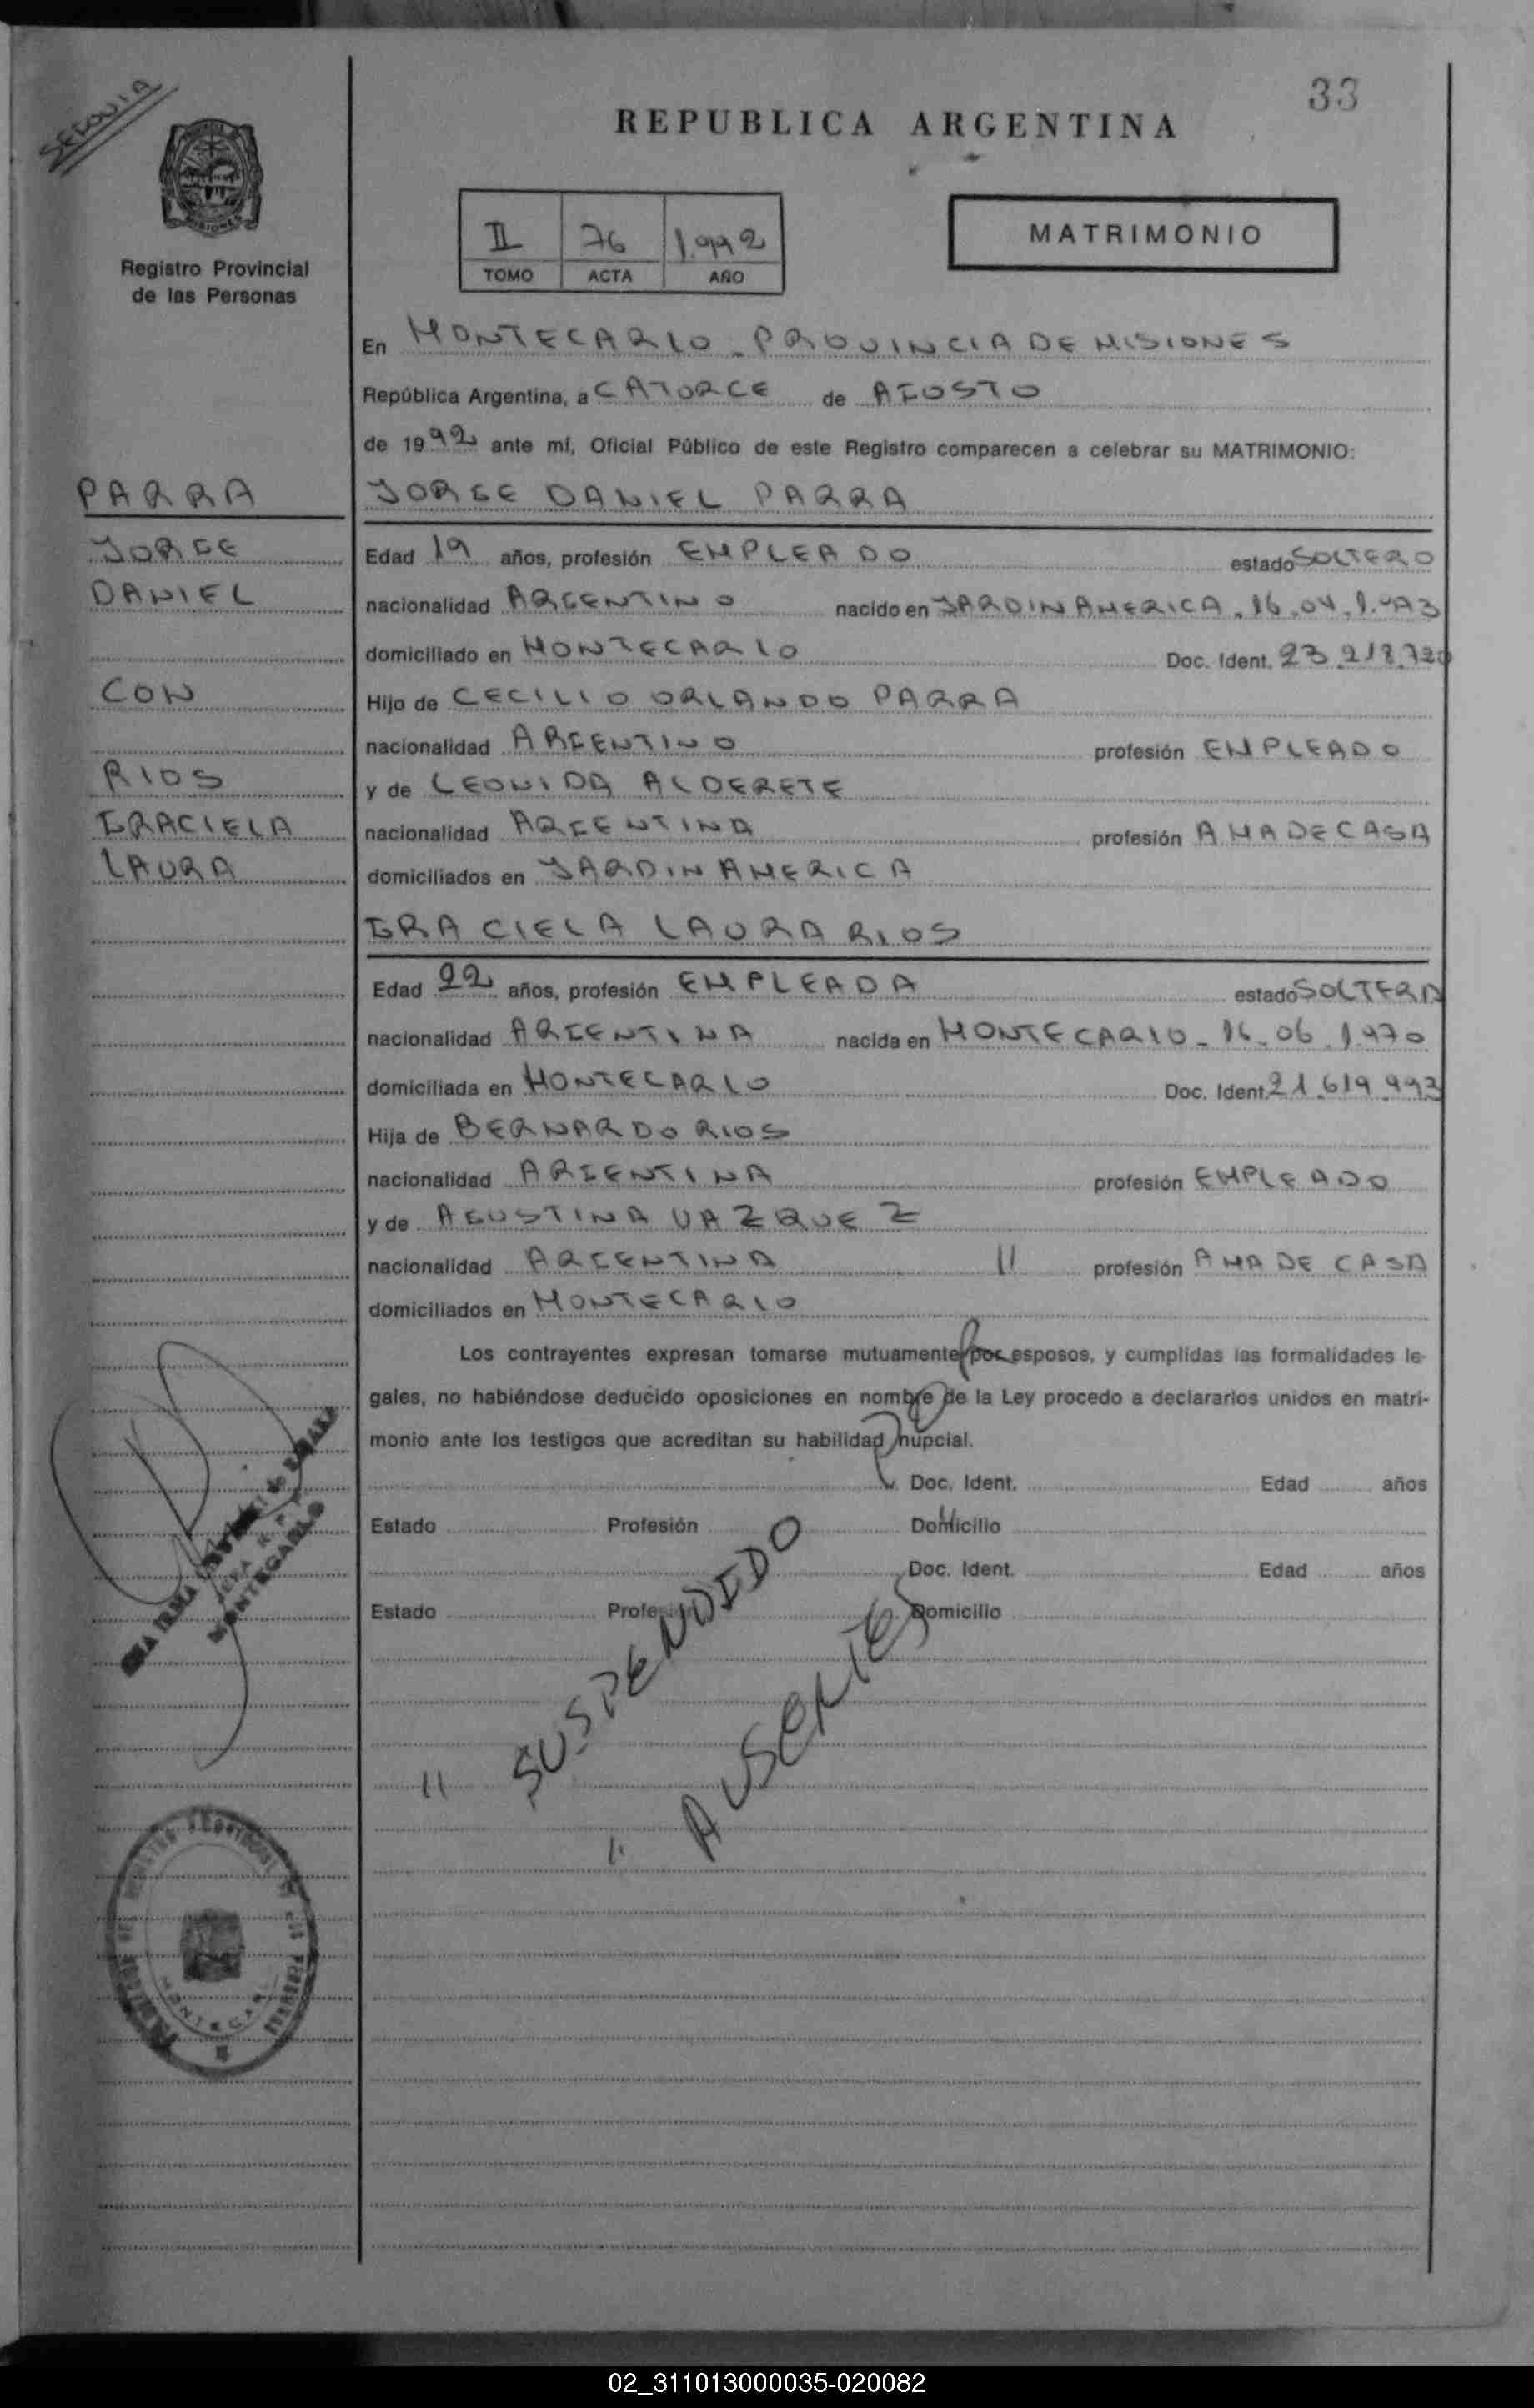 33
REPUBLICA ARGENTINA
Registro Provincial
de las Personas
II 76 1.992
TOMO ACTA AÑO
MATRIMONIO
En MONTECARLO - PROVINCIA DE MISIONES
República Argentina, a CATORCE de AGOSTO
de 1992 ante mí, Oficial Público de este Registro comparecen a celebrar su MATRIMONIO:
PARRA
JORGE
DANIEL
CON
RIOS
GRACIELA
LAURA
JORGE DANIEL PARRA
Edad 19 años, profesión EMPLEADO estado SOLTERO
nacionalidad ARGENTINO nacido en JARDIN AMERICA. 16.04.1.973
domiciliado en MONTECARLO Doc. Ident. 23.218.720
Hijo de CECILIO ORLANDO PARRA
nacionalidad ARGENTINO profesión EMPLEADO
y de LEONIDA ALDERETE
nacionalidad ARGENTINA profesión AMA DE CASA
domiciliados en JARDIN AMERICA
GRACIELA LAURA RIOS
Edad 22 años, profesión EMPLEADA estado SOLTERA
nacionalidad ARGENTINA nacida en MONTECARLO - 16.06.1.970
domiciliada en MONTECARLO Doc. Ident. 21.619.993
Hija de BERNARDO RIOS
nacionalidad ARGENTINA profesión EMPLEADO
y de AGUSTINA VAZQUEZ
nacionalidad ARGENTINA // profesión AMA DE CASA
domiciliados en MONTECARLO
Los contrayentes expresan tomarse mutuamente por esposos, y cumplidas las formalidades le-
gales, no habiéndose deducido oposiciones en nombre de la Ley procedo a declararlos unidos en matri-
monio ante los testigos que acreditan su habilidad nupcial.
Doc. Ident. Edad años
Estado Profesión Domicilio
Doc. Ident. Edad años
Estado Profesión Domicilio
// SUSPENDIDO
// AUSENTES
IRMA
MONTECARLO
MONTECARLO
02_311013000035-020082